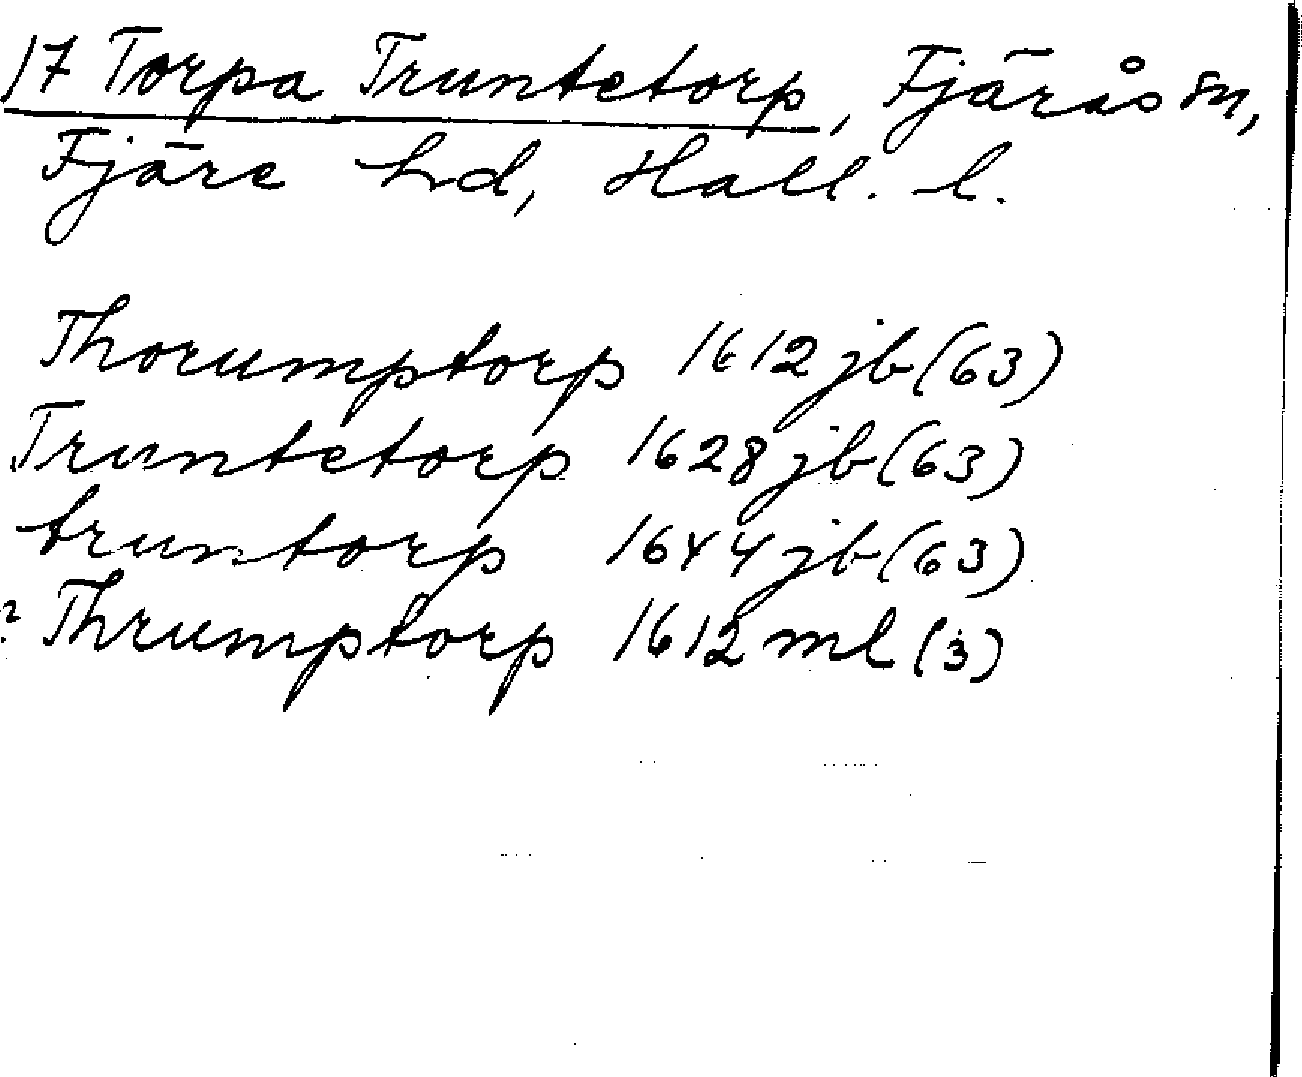 17 Torpa Truntetorp, Fjärås sn,
Fjäre hd, Hall. l.
Thorumptorp 1612 jb (63)
Truntetorp 1628 jb (63)
truntorp 1644 jb (63)
? Thrumptorp 1612 ml (3)